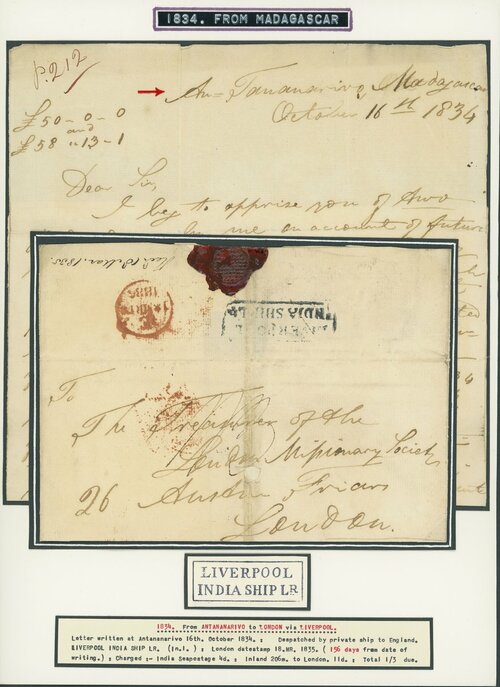 1834. FROM MADAGASCAR
p. 212
An-Tananarivo, Madagascar
October 16th 1834
£50-0-0
and
£58 "13-1
Dear Sir,
I beg to apprise you of two
me on account of future
1835.
LIVERPOOL
INDIA SHIP LR
To
The Treasurer of the
London Missionary Society
26 Austin Friars
London.
LIVERPOOL
INDIA SHIP LR
1834. From ANTANANARIVO to LONDON via LIVERPOOL.
Letter written at Antananarivo 16th. October 1834. ; Despatched by private ship to England.
LIVERPOOL INDIA SHIP LR. (In.1.) ; London datestamp 18.MR. 1835. ( 156 days from date of
writing.) ; Charged :- India Seapostage 4d. ; Inland 206m. to London. 11d. ; Total 1/3 due.